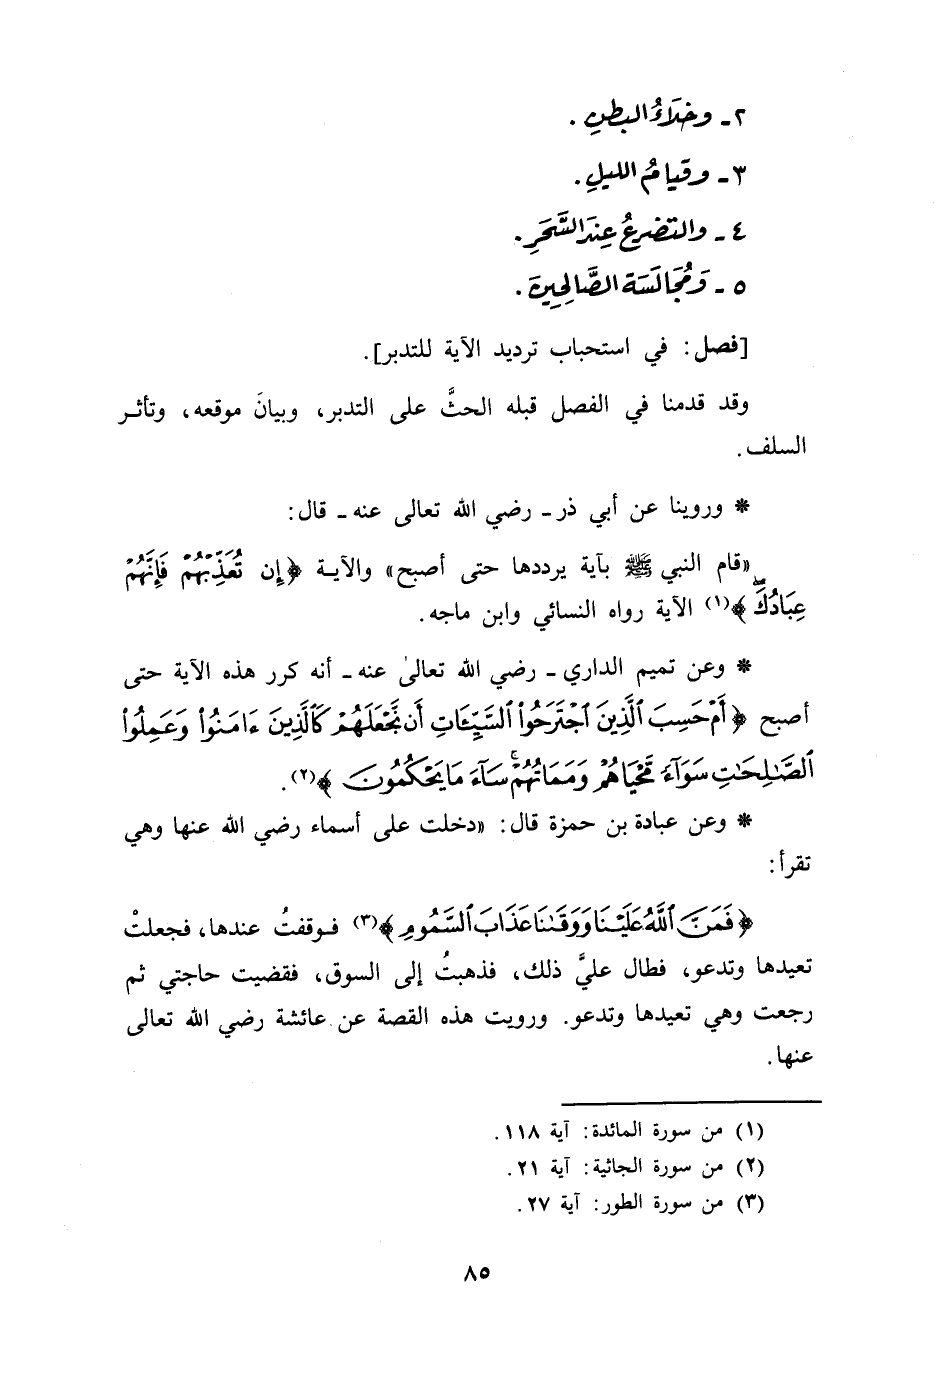 ٢ - وخلَاءُ البطنِ .
٣ - وقيامُ الليلِ .
٤ - والتضرعُ عِندَ السَّحَرِ .
٥ - وَمُجَالَسَة الصَّالِحِينَ .
[فصل: في استحباب ترديد الآية للتدبر].
وقد قدمنا في الفصل قبله الحثَّ على التدبر، وبيانَ موقعه، وتأثر
السلف.
* وروينا عن أبي ذر - رضي الله تعالى عنه - قال:
«قام النبي ﷺ بآية يرددها حتى أصبح» والآية ﴿إِن تُعَذِّبْهُمْ فَإِنَّهُمْ
عِبَادُكَۖ﴾(١) الآية رواه النسائي وابن ماجه.
* وعن تميم الداري - رضي الله تعالىٰ عنه - أنه كرر هذه الآية حتى
أصبح ﴿أَمْ حَسِبَ ٱلَّذِينَ ٱجْتَرَحُوا۟ ٱلسَّيِّـَٔاتِ أَن نَّجْعَلَهُمْ كَٱلَّذِينَ ءَامَنُوا۟ وَعَمِلُوا۟
ٱلصَّـٰلِحَـٰتِ سَوَآءً مَّحْيَاهُمْ وَمَمَاتُهُمْۚ سَآءَ مَا يَحْكُمُونَ﴾(٢).
* وعن عبادة بن حمزة قال: «دخلت على أسماء رضي الله عنها وهي
تقرأ:
﴿فَمَنَّ ٱللَّهُ عَلَيْنَا وَوَقَىٰنَا عَذَابَ ٱلسَّمُومِ﴾(٣) فوقفتُ عندها، فجعلتْ
تعيدها وتدعو، فطال عليَّ ذلك، فذهبتُ إلى السوق، فقضيت حاجتي ثم
رجعت وهي تعيدها وتدعو. ورويت هذه القصة عن عائشة رضي الله تعالى
عنها.
(١) من سورة المائدة: آية ١١٨.
(٢) من سورة الجاثية: آية ٢١.
(٣) من سورة الطور: آية ٢٧.
٨٥